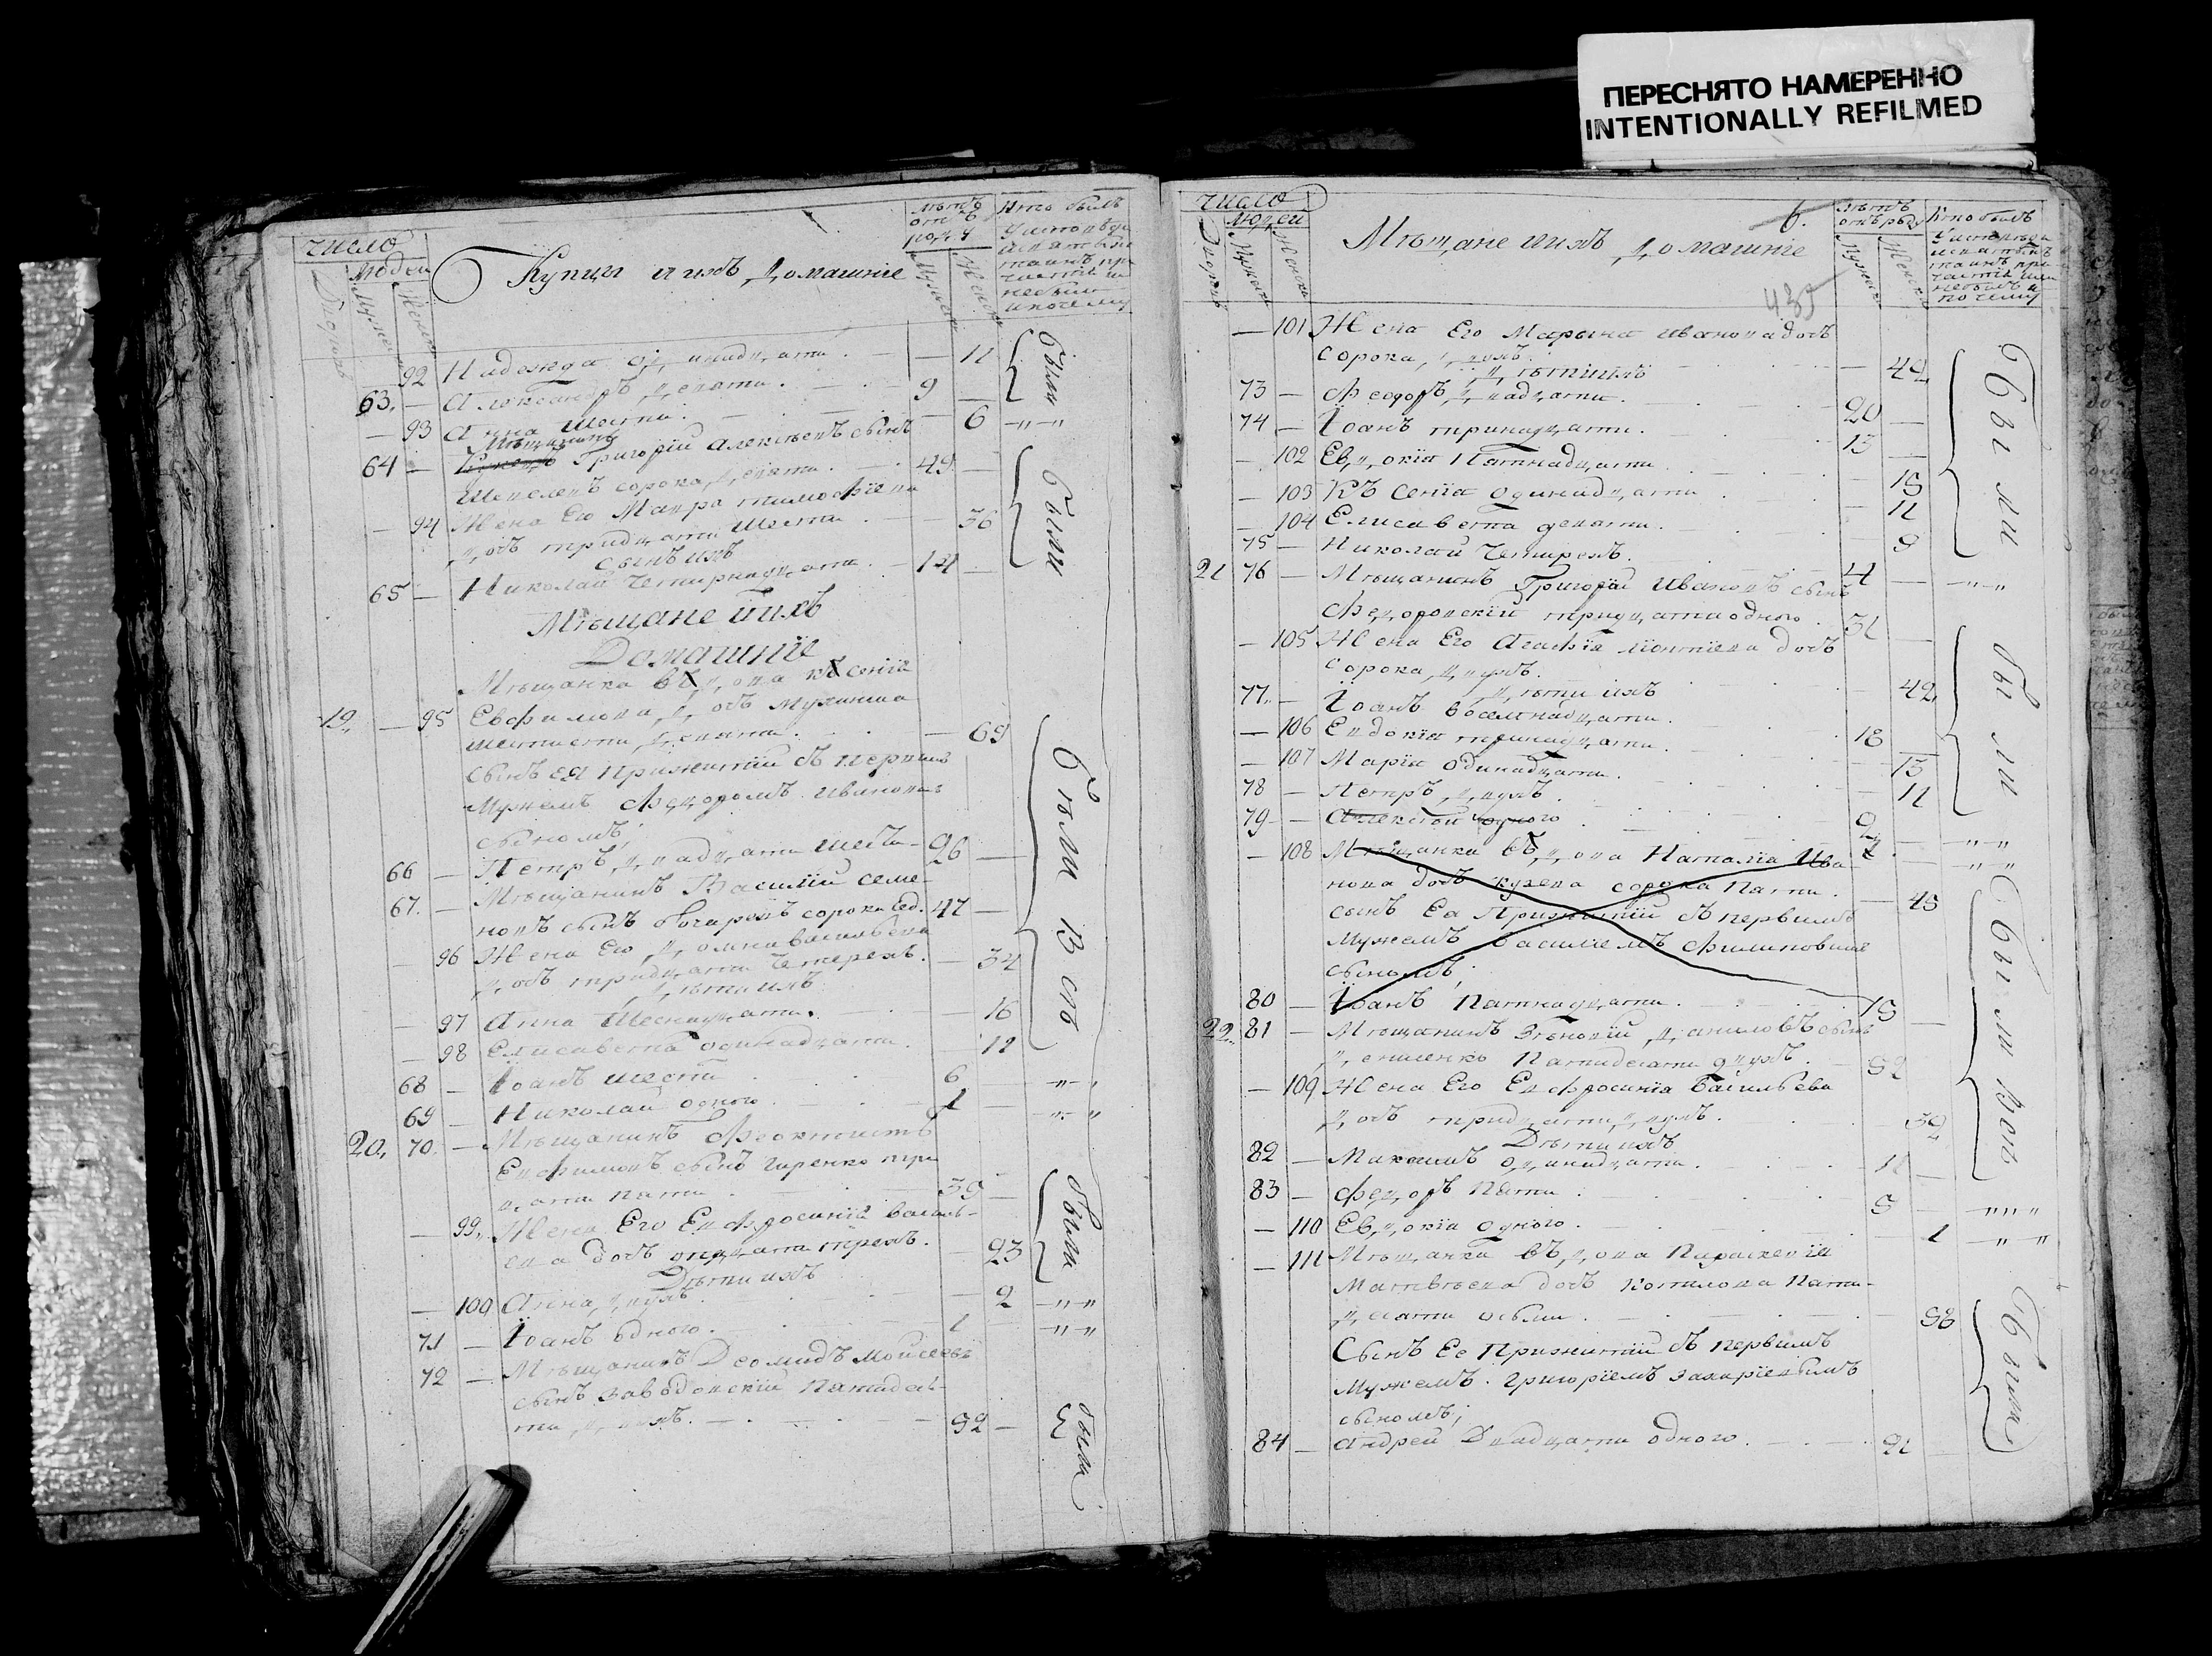 ПЕРЕСНЯТО НАМЕРЕННО
INTENTIONALLY REFILMED
число
Людей
Купцы и ихъ Домашніе
92 Надежда одинадцати 11
63. Александръ девяти 9
были
93 Анна шести 6
Мѣщанинъ
64 Григорій Алексѣевъ сынъ
сорока девяти 49
94 Жена Его Мавра Тимофѣева
дочь тридцати шести 36
сынъ ихъ
были
65 Николай четырнадцати 14
Мѣщане и ихъ
Домашніе
Мѣщанка вдова Ксенія
19 95 Евфимова дочь
шестдесяти девяти 69
сынъ ея прижитый съ первымъ
мужемъ Федоромъ Ивановымъ
сыномъ;
66 Петръ двадцати шести 26
67. Мѣщанинъ Василій Семе-
новъ сынъ сорока сед. 47
96 Жена Его Домна Васильева
дочь тридцати четырехъ 34
дѣти ихъ
97 Анна шеснадцати 16
98 Елисавета одинадцати 11
Были Всѣ
68 Іоанъ шести 6
69 Николай одного 1
20. 70. Мѣщанинъ Феоктистъ
Евфимовъ сынъ три-
дцати пяти 35
99 Жена Его Евфросинія Василь-
ева дочь двадцати трехъ 23
Дѣти ихъ
были
100 Анна двухъ 2
71 Іоанъ одного 1
72 Мѣщанинъ Деомидъ Моисеевъ
сынъ Заводовскій пятидеся-
ти двухъ 52
были
число
Людей
Мѣщане и ихъ Домашніе
6.
439
101 Жена Его Марьяна Иванова дочь
сорока двухъ 42
дѣти ихъ
73 Федоръ двадцати 20
74 Іоанъ тринадцати 13
102 Евдокія пятнадцати 15
103 Ксенія одинадцати 11
104 Елисавета девяти 9
Были
75 Николай четырехъ 4
21 76 Мѣщанинъ Григорій Ивановъ сынъ
Федоровскій тридцати одного 31
105 Жена Его Агафія Леонтіева дочь
сорока двухъ 42
дѣти ихъ
77 Іоанъ восемнадцати 18
106 Евдокія тринадцати 13
107 Марія одинадцати 11
Были
78 Петръ двухъ 2
79 Алексѣй одного
108 Мѣщанка вдова Наталія Ива-
нова дочь сорока пяти 45
сынъ Ея прижитый съ первымъ
мужемъ Василіемъ Филиповымъ
сыномъ;
80 Іоанъ пятнадцати 15
22 81 Мѣщанинъ Зѣновій Даниловъ сынъ
пятидесяти двухъ 52
109 Жена Его Евфросинія Васильева
дочь тридцати двухъ 32
Дѣти ихъ
82 Максимъ одинадцати 11
Были Всѣ
83 Федоръ пяти 5
110 Евдокія одного 1
111 Мѣщанка вдова Параскевія
Матвѣева дочь Котилова пяти-
десяти осьми 58
Сынъ Ее прижитый съ первымъ
мужемъ Григоріемъ Захаріевымъ
сыномъ;
84 Андрей Двадцати одного 21
Были